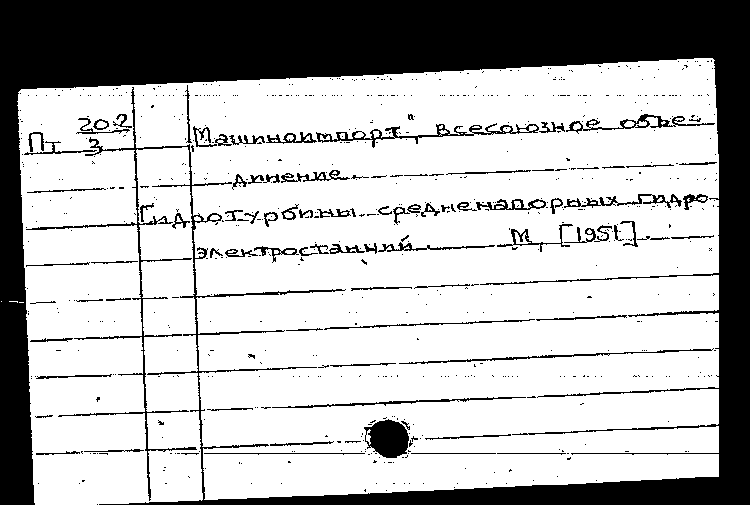 Пт 20.2
3
Машиноимпорт", всесоюзное объе-
динение.
Гидротурбины средненапорных гидро-
электростанций. М, [1951].